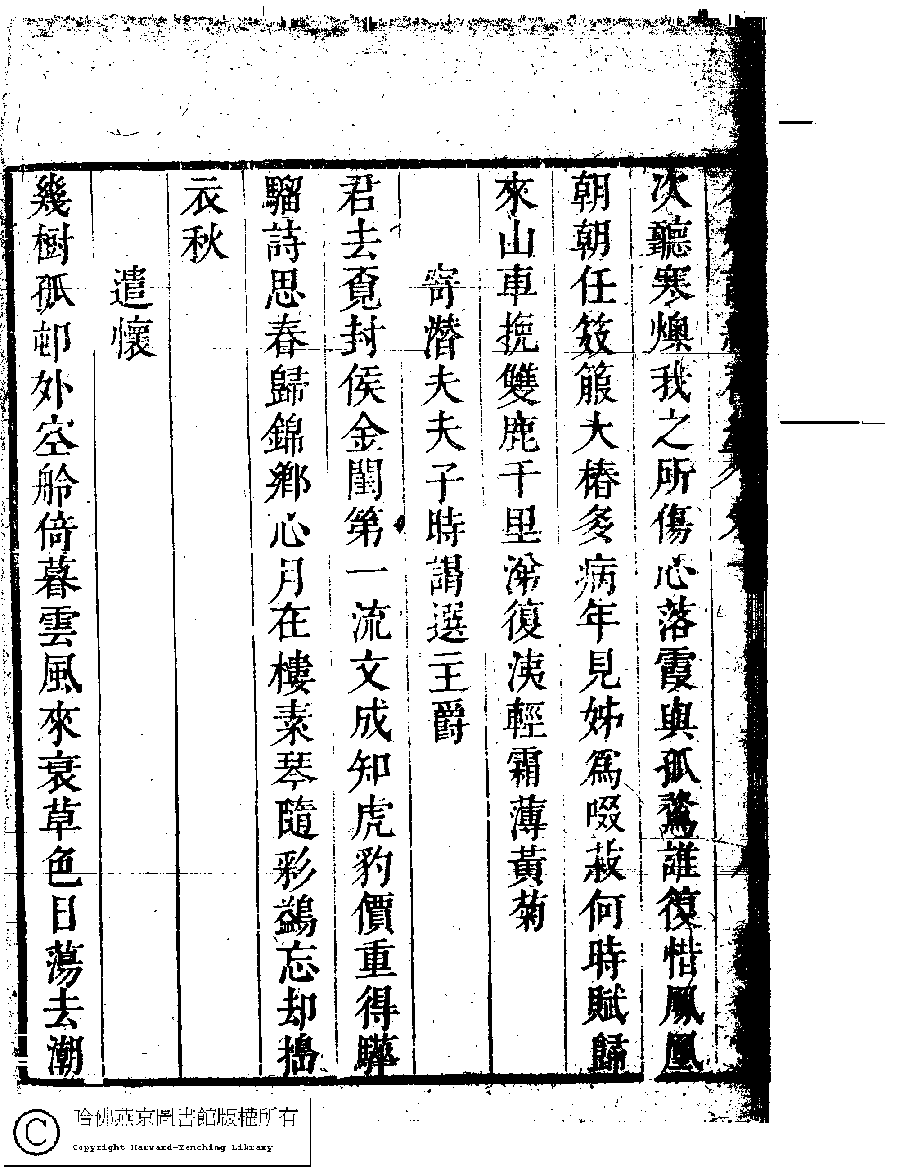 次聽寒燠我之所傷心落霞與孤鶩誰復惜鳳凰
朝朝任笯籠大椿多病年見姊為啜菽何時賦歸
來山車挽雙鹿千里滁復洟輕霜薄黃菊
寄潛夫夫子時謁選王爵
君去覔封侯金閨第一流文成知虎豹價重得驊
騮詩思春歸錦鄉心月在樓素琴隨彩鷁忘却搗
衣秋
遣懷
幾樹孤邨外空舲倚暮雲風來衰草色日蕩去潮
哈佛燕京圖書館版權所有
Copyright Harvard-Yenching Library